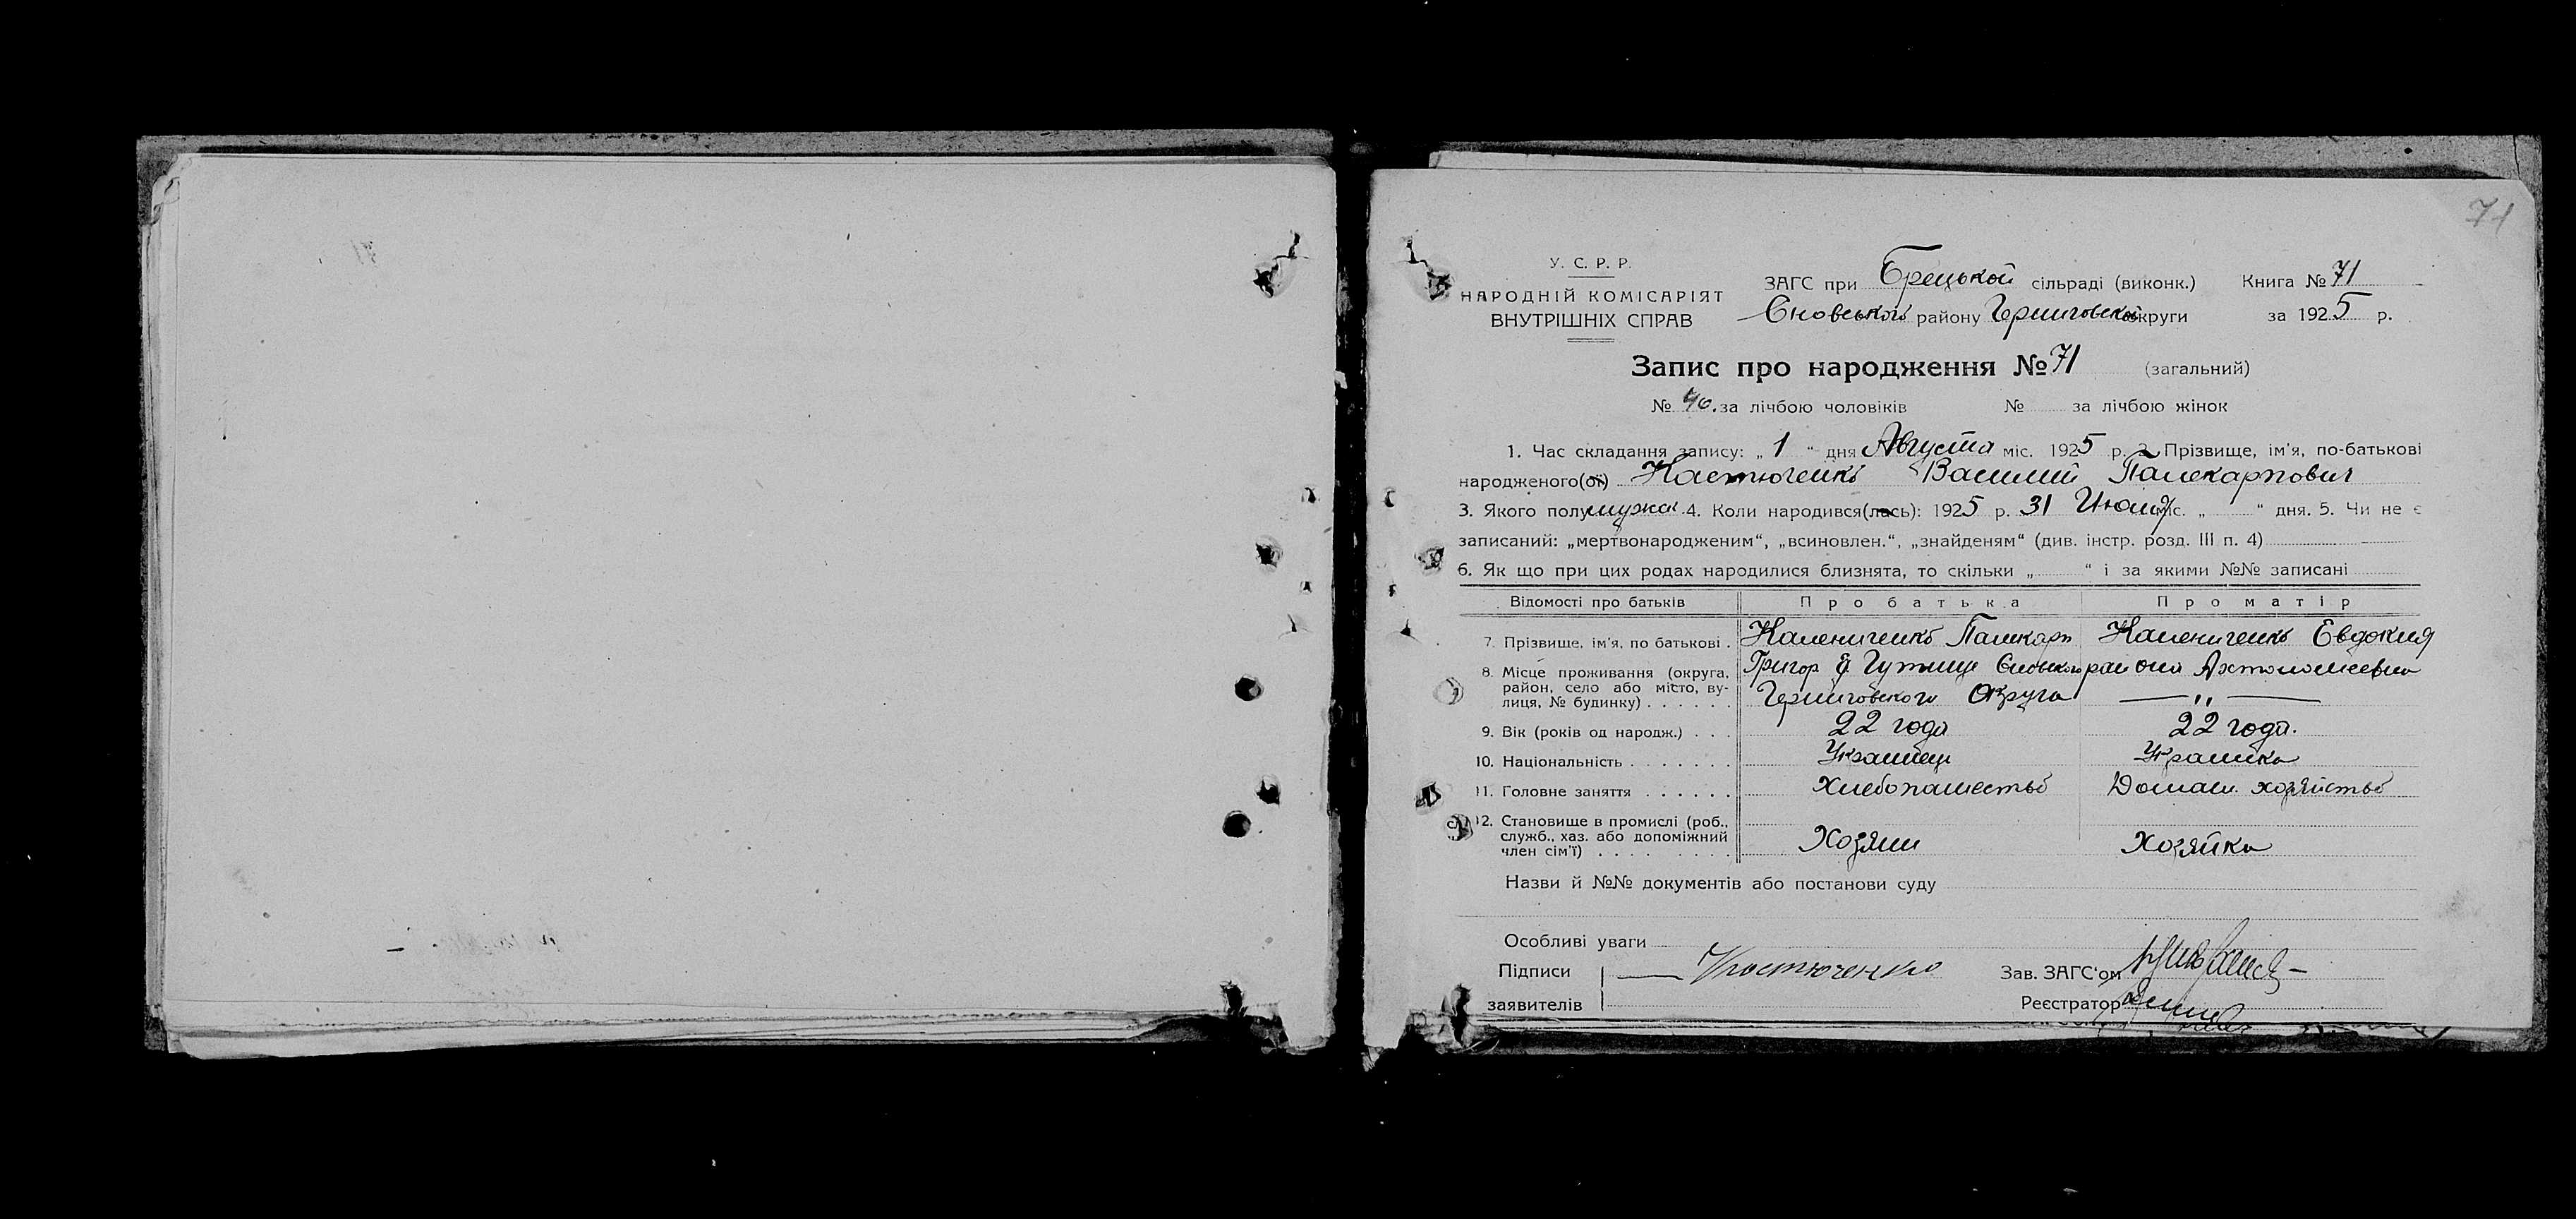 71
У. С. Р. Р.
НАРОДНІЙ КОМІСАРІЯТ
ВНУТРІШНІХ СПРАВ
ЗАГС при Брецькой сільраді (виконк.) Книга № 71
Сновського району Черниговской округи за 1925 р.
Запис про народження № 71 (загальний)
№ 40. за лічбою чоловіків № за лічбою жінок
1. Час складання запису: „ 1 “ дня Августа міс. 1925 р. 2. Прізвище, ім'я, по-батькові
народженого(ої) Костюченко Василий Паликарпович
3. Якого полу мужск. 4. Коли народився(лась): 1925 р. 31 Июля міс. „ “ дня. 5. Чи не є
записаний: „мертвонародженим“, „всиновлен.“, „знайденям“ (див. інстр. розд. III п. 4)
6. Як що при цих родах народилися близнята, то скільки „ “ і за якими №№ записані
Відомості про батьків Про батька Про матір
7. Прізвище, ім'я, по батькові . Паликарп Евдокия
8. Місце проживання (округа, район, село або місто, вулиця, № будинку) . . . . . . Григор Гутище Сновского района
Черниговского Округа — „ —
9. Вік (років од народж.) . . . 22 года 22 года.
10. Національність . . . . . . . Украинец Украинка
11. Головне заняття . . . . . . Хлебопашество Домаш. хозяйство
12. Становище в промислі (роб., служб., хаз. або допоміжний член сім'ї) . . . . . . . . . Хозяин Хозяйка
Назви й №№ документів або постанови суду
Особливі уваги
Підписи — Костюченко Зав. ЗАГС'ом
заявителів Реєстратор